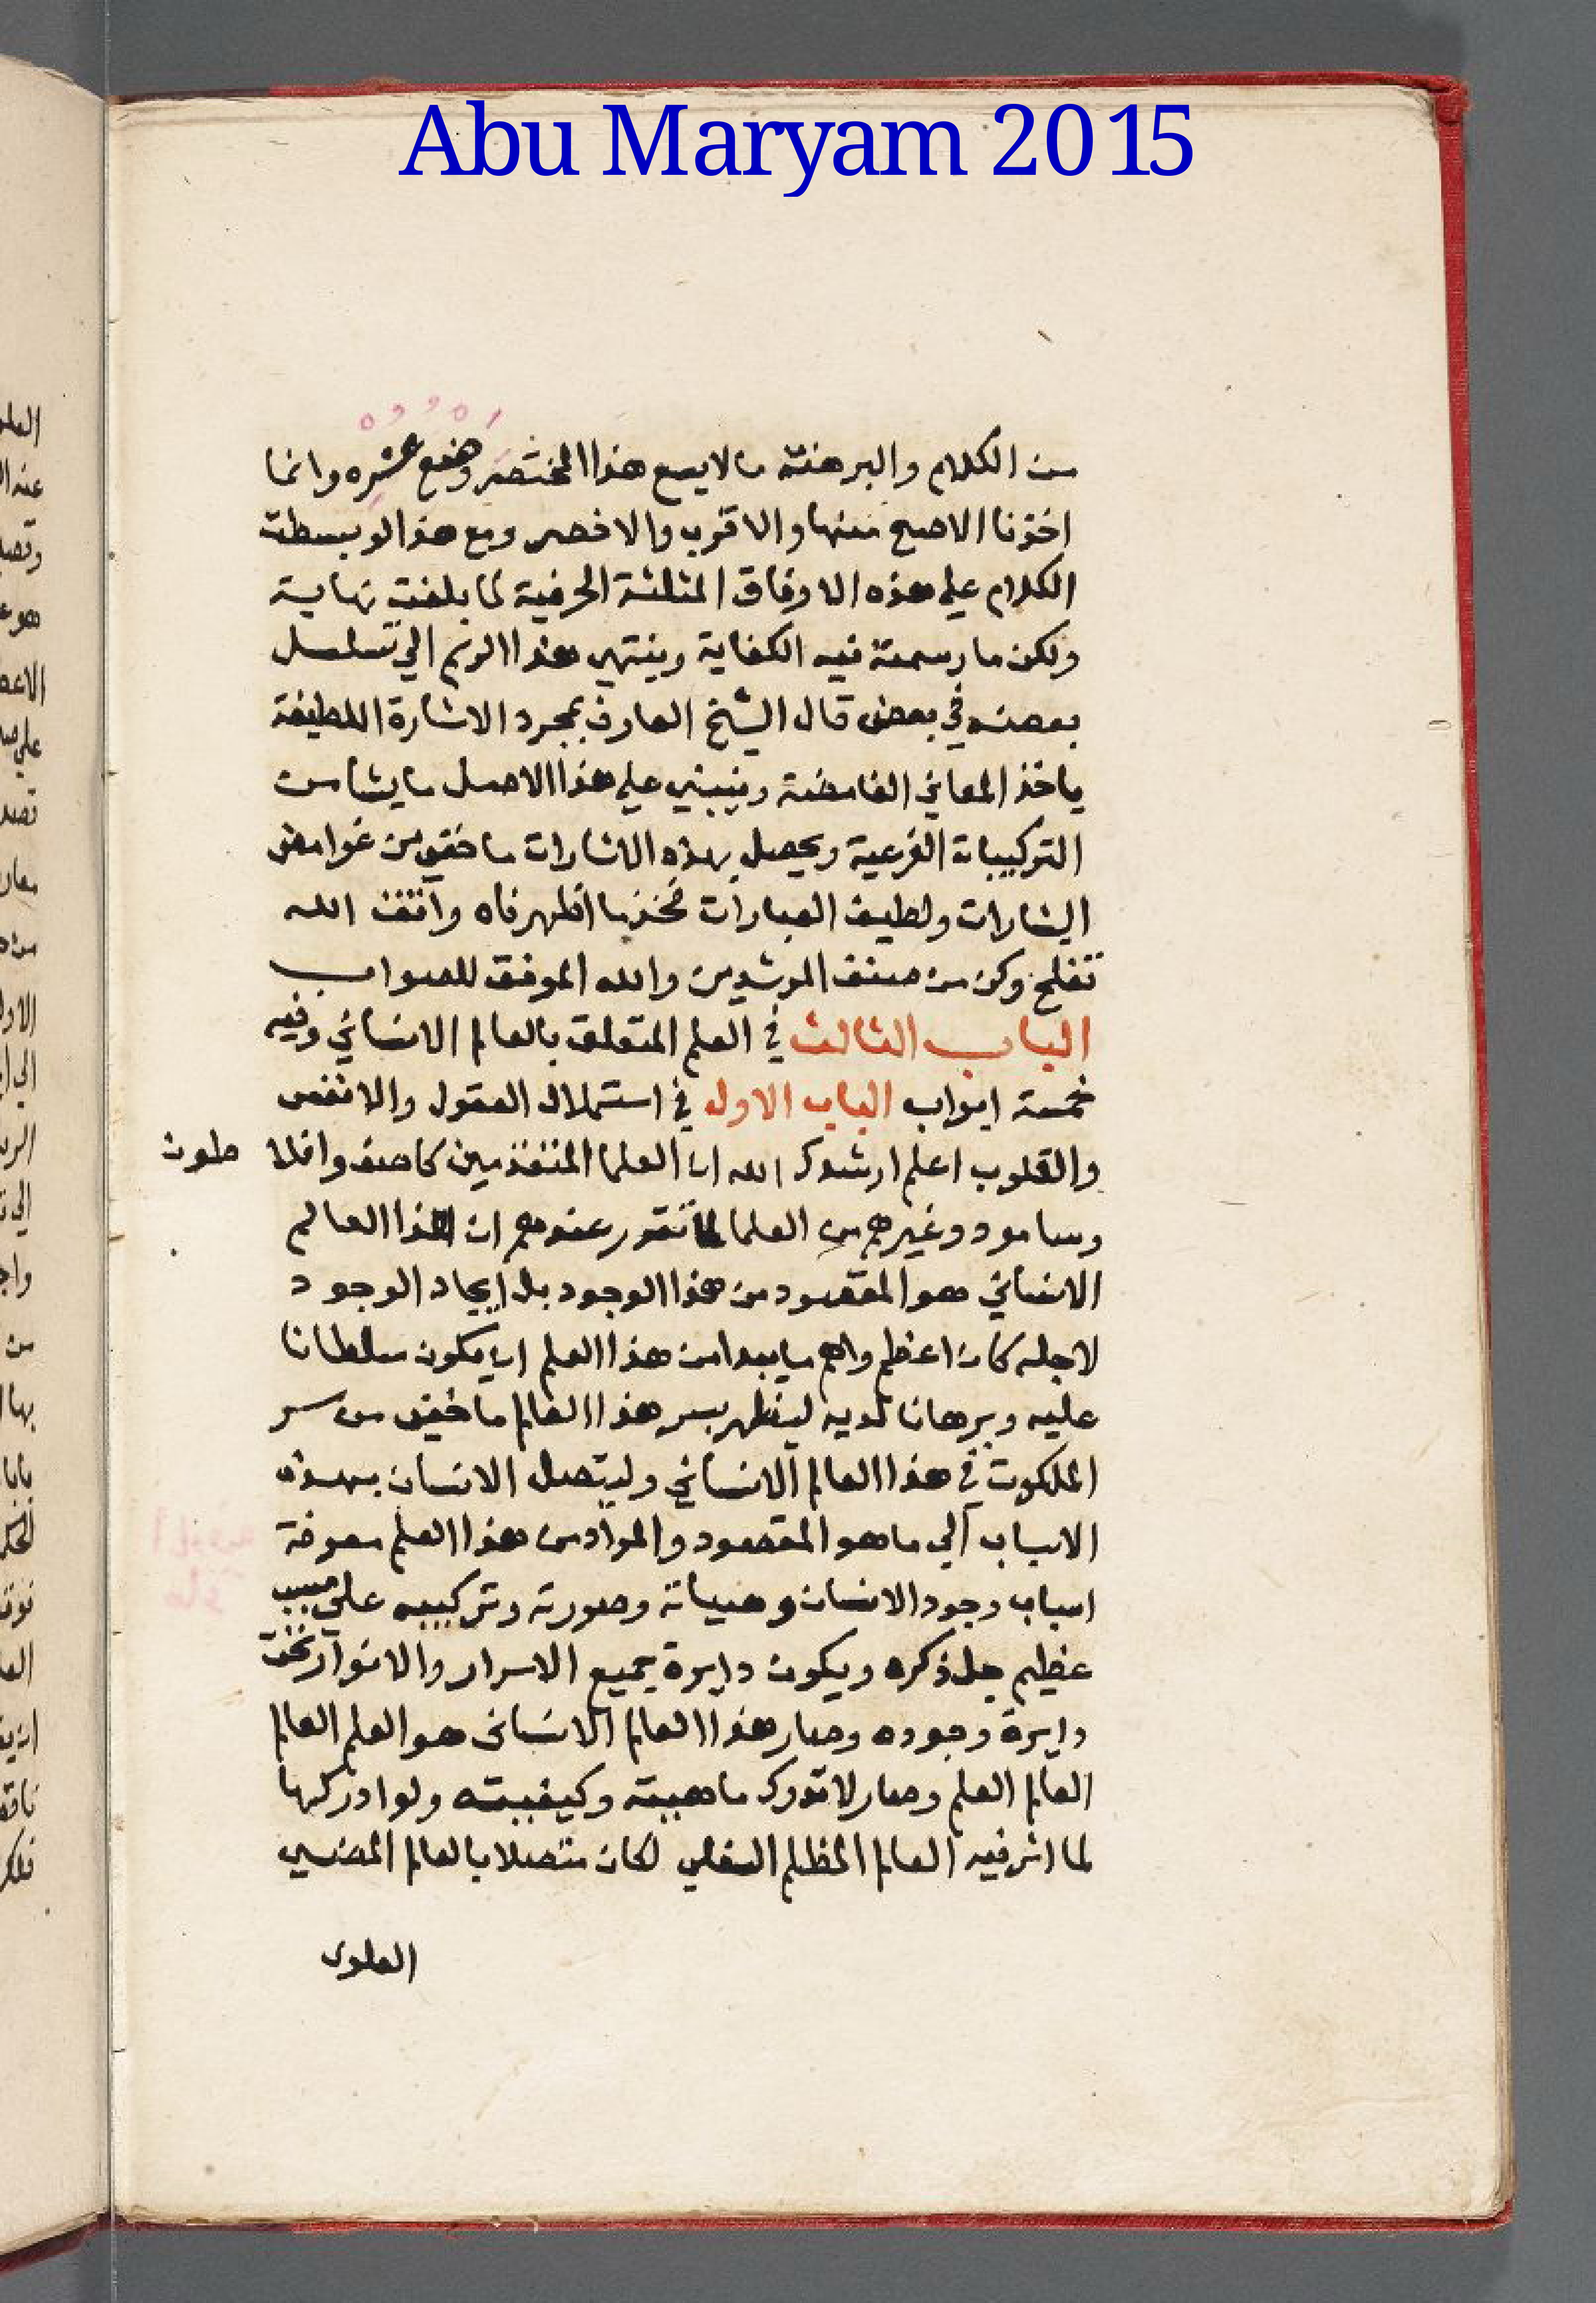 Abu Maryam 2015
من الكلام والبرهنة ما لا يسع هذا المختصر وضع عشره وانما
اخذنا الاصح منها والاقرب والاخصر ومع هذا لو بسطت
الكلام علي هذه الاوفاق المثلثة الحرفية لما بلغت نهاية
ولكن ما رسمته فيه الكفاية وينتهي هذا الرسم الي تسلسل
بعضه في بعض قال الشيخ العارف بمجرد الاشارة اللطيفة
ياخذ المعاني الغامضة وينبني علي هذا الاصل ما يشا من
التركيبات الفرعية ويحصل بهذه الاشارات ما خفي من غوامض
الشارات ولطيف العبارات فخذ ما اظهرناه واتق الله
تفلح وكن من صنف المرشدين والله الموفق للصواب
الباب الثالث في العلم المتعلق بالعالم الانساني وفيه
خمسة ابواب الباب الاول في استملال العقول والانفس
والقلوب اعلم ارشدك الله ان العلما المتقدمين كاصف وافلا طون
وسامور وغيرهم من العلما لما تقرر عندهم ان هذا العالم
الانساني هو المقصود من هذا الوجود بل ايجاد الوجود
لاجله كان اعظم واهم ما يبدا من هذا العلم ان يكون سلطانا
عليه وبرهانا لديه ليظهر بسر هذا العالم ما خفي من سر
الملكوت في هذا العالم الانساني وليتصل الانسان بهذه
الاسباب الي ما هو المقصود والمراد من هذا العلم معرفة
اسباب وجود الانسان وهيأته وصورته وتركيبه علي سبب
عظيم جل ذكره ويكون دايرة جميع الاسرار والانوار تحت
دايرة وجوده وصار هذا العالم الانسانى هو العلم العالم
العالم العلم وصار لا تدرك ماهيته وكيفيته ولو ادركها
لما اثر فيه العالم المظلم السفلي لكان متصلا بالعالم المضيي
العلوى